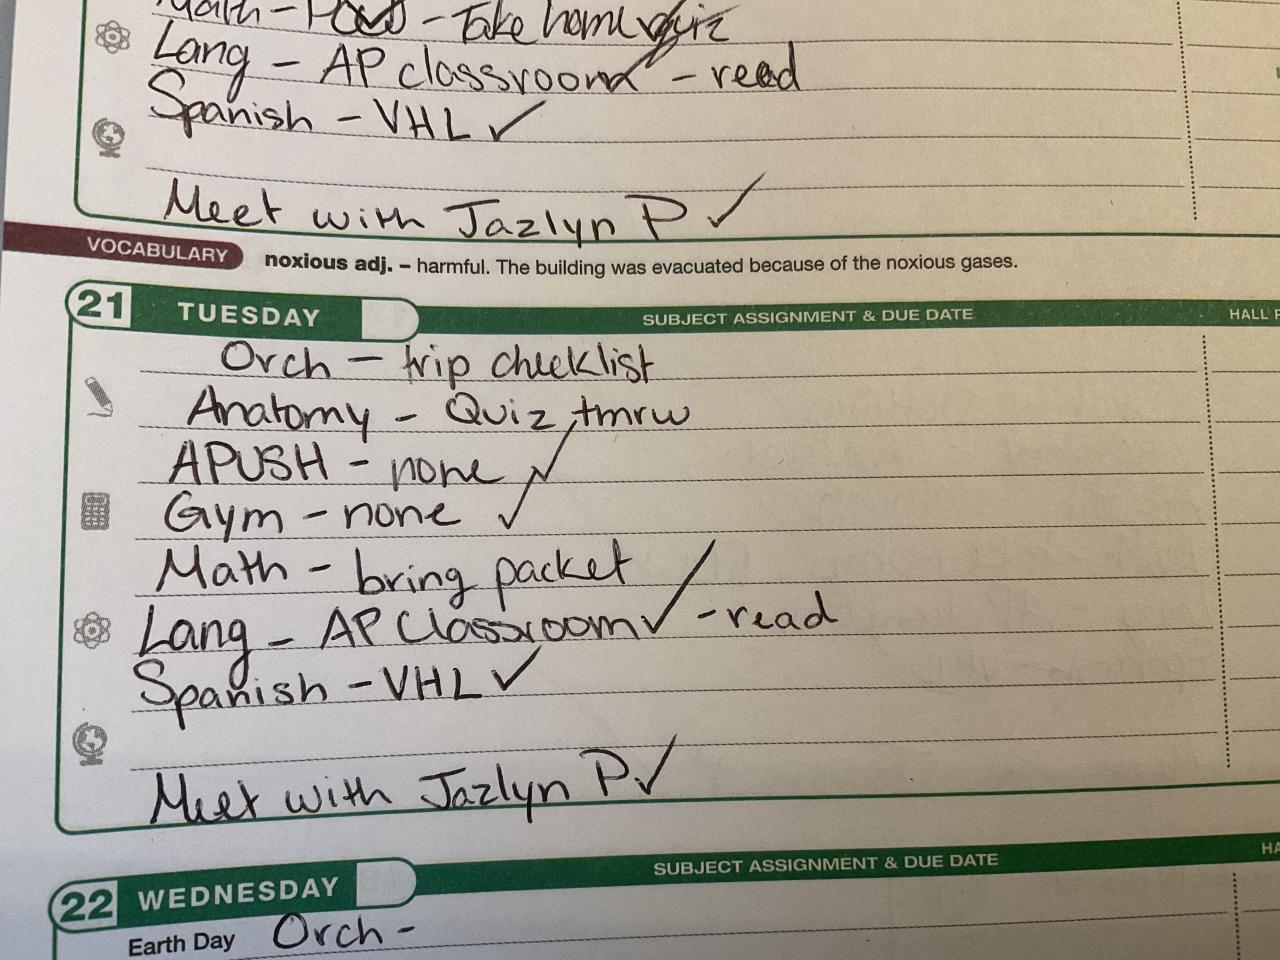 Math - - Take home quiz
Lang - AP classroom ✓ - read
Spanish - VHL ✓
Meet with Jazlyn P ✓
VOCABULARY noxious adj. – harmful. The building was evacuated because of the noxious gases.
21 TUESDAY SUBJECT ASSIGNMENT & DUE DATE HALL
Orch - trip checklist
Anatomy - Quiz tmrw
APUSH - none ✓
Gym - none ✓
Math - bring packet
Lang - AP Classroom ✓ - read
Spanish - VHL ✓
Meet with Jazlyn P ✓
22 WEDNESDAY SUBJECT ASSIGNMENT & DUE DATE
Earth Day Orch -